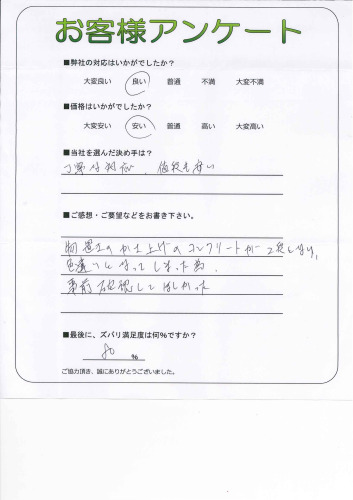 お客様アンケート
■弊社の対応はいかがでしたか？
大変良い 良い 普通 不満 大変不満
■価格はいかがでしたか？
大変安い 安い 普通 高い 大変高い
■当社を選んだ決め手は？
丁寧な対応、値段も安い
■ご感想・ご要望などをお書き下さい。
物置きのかさ上げのコンクリートが
色違いとなってしまった為、
事前確認してほしかった
■最後に、ズバリ満足度は何％ですか？
80 ％
ご協力頂き、誠にありがとうございました。